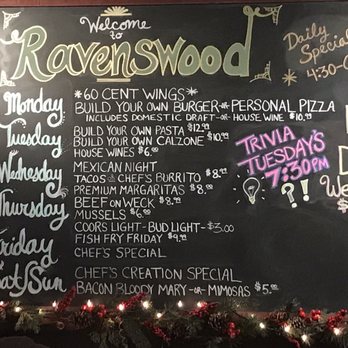 Welcome
to
Ravenswood
Daily
Special
4:30-
Monday
*60 CENT WINGS*
BUILD YOUR OWN BURGER -OR- PERSONAL PIZZA
INCLUDES DOMESTIC DRAFT -OR- HOUSE WINE $10.99
Tuesday
BUILD YOUR OWN PASTA $12.99
BUILD YOUR OWN CALZONE $10.99
HOUSE WINES $6.00
Wednesday
MEXICAN NIGHT
TACOS & CHEF'S BURRITO $8.99
PREMIUM MARGARITAS $8.00
Thursday
BEEF ON WECK $8.99
MUSSELS $6.99
COORS LIGHT - BUD LIGHT - $3.00
Friday
FISH FRY FRIDAY $9.99
CHEF'S SPECIAL
Sat/Sun
CHEF'S CREATION SPECIAL
BACON BLOODY MARY -OR- MIMOSAS $5.00
TRIVIA
TUESDAY'S
7:30PM
?!